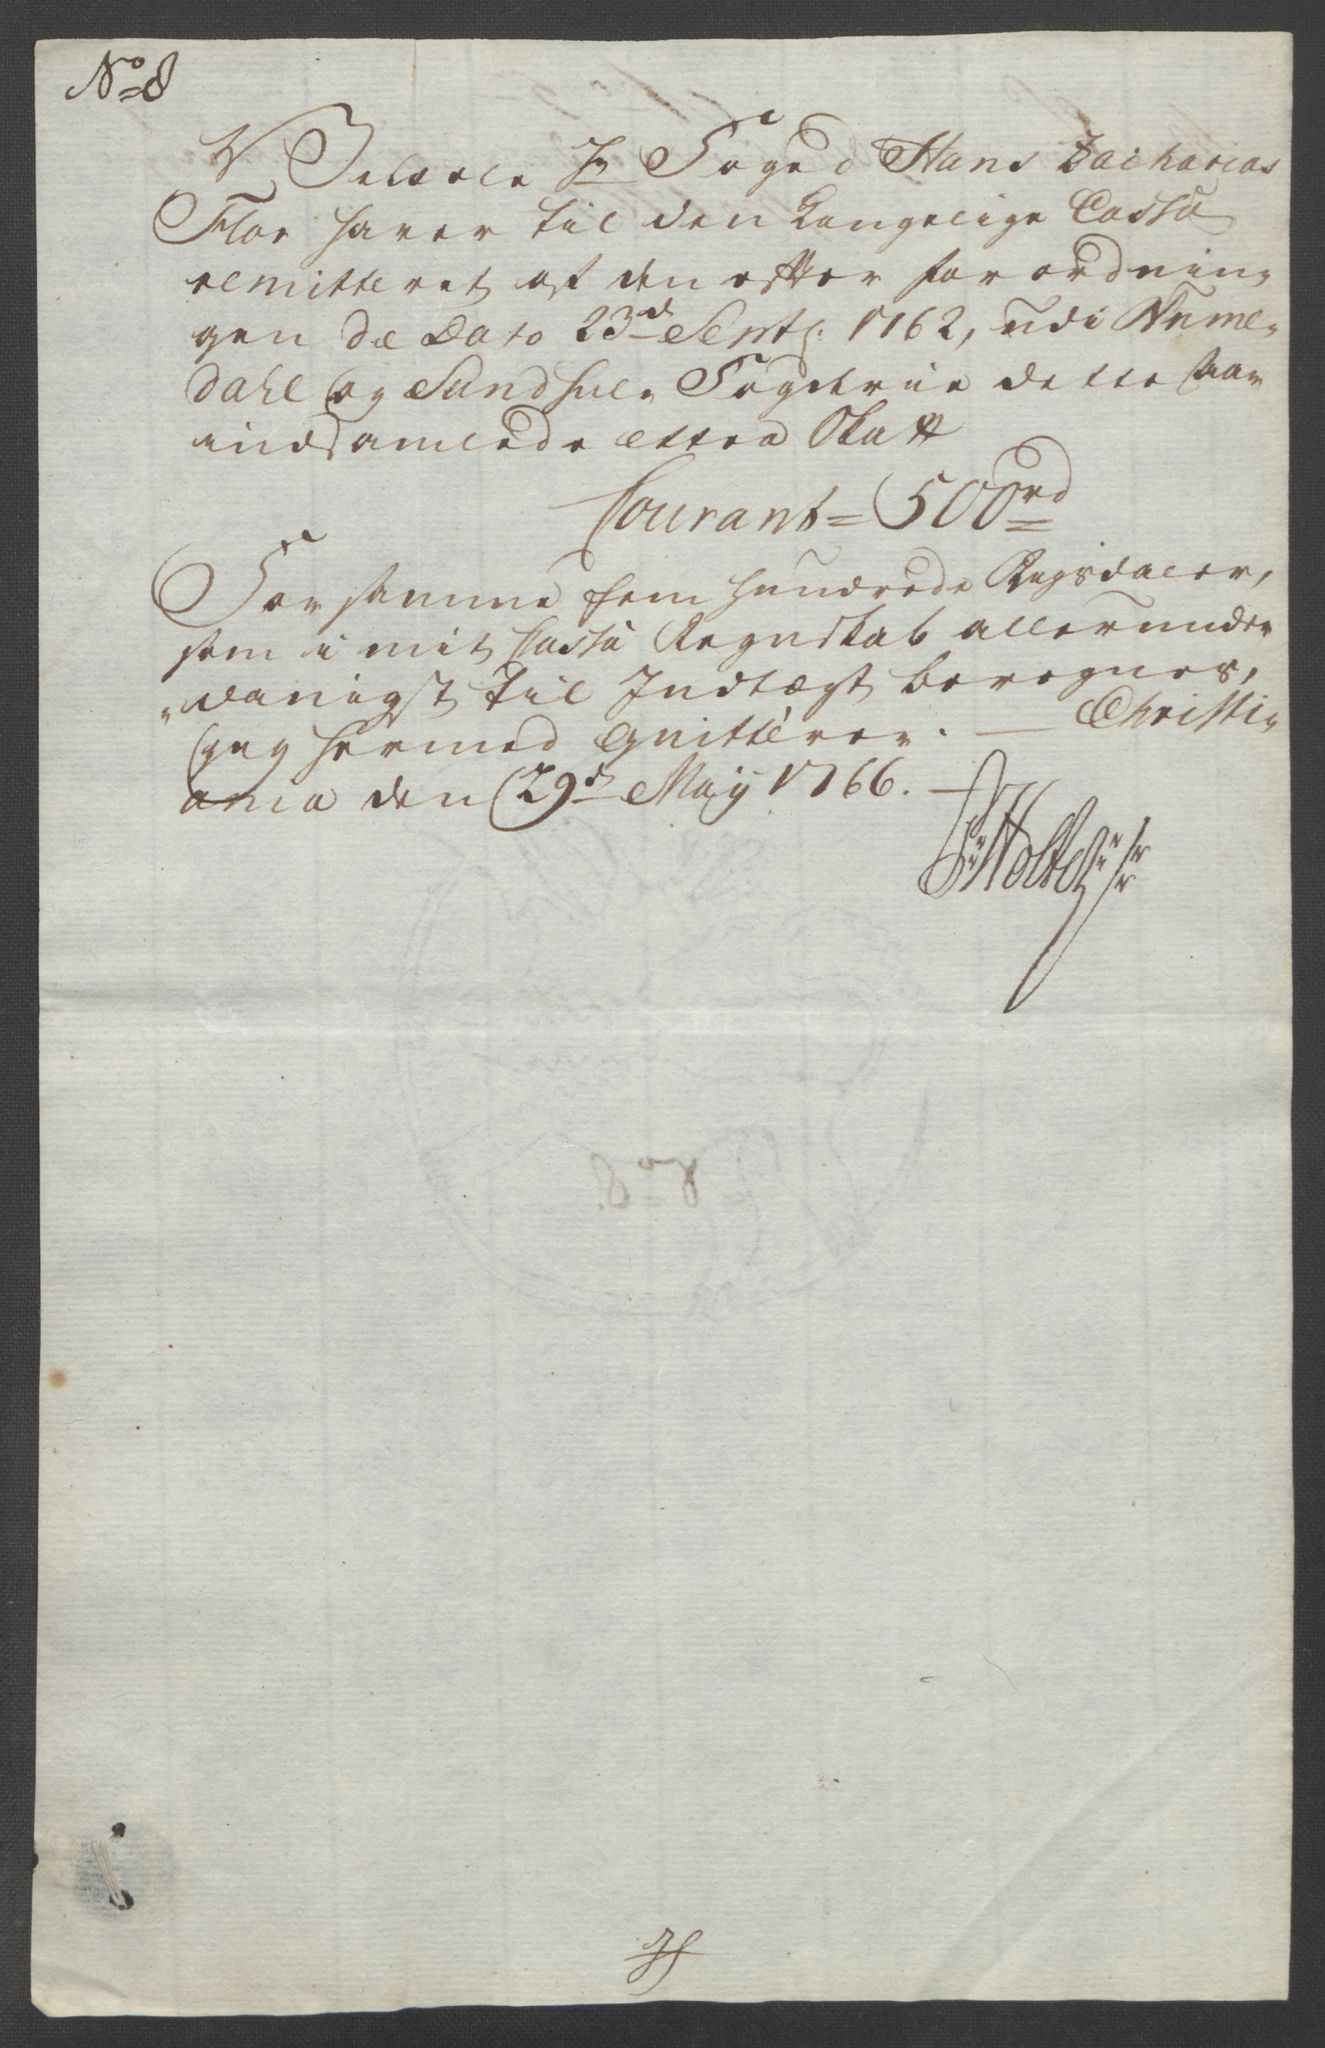 No 8
Velædle Hr Foged Hans Zacharias
Flor haver til den Kongelige Cassa
remitteret af den efter forordnin,
gen de Dato 23d Septb: 1762, udi Nume,
dahl og Sandsvers Fogderie dette aar
indsamlede Extra Skatt
Courant = 500 rd
For samme fem hundrede Rigsdaler,
som i mit Cassa Regnskab allerunder
„danigst til Indtægt beregnes,
jeg hermed qvitterer. — Christi„
ania den 29d Maij 1766. —
No 8.